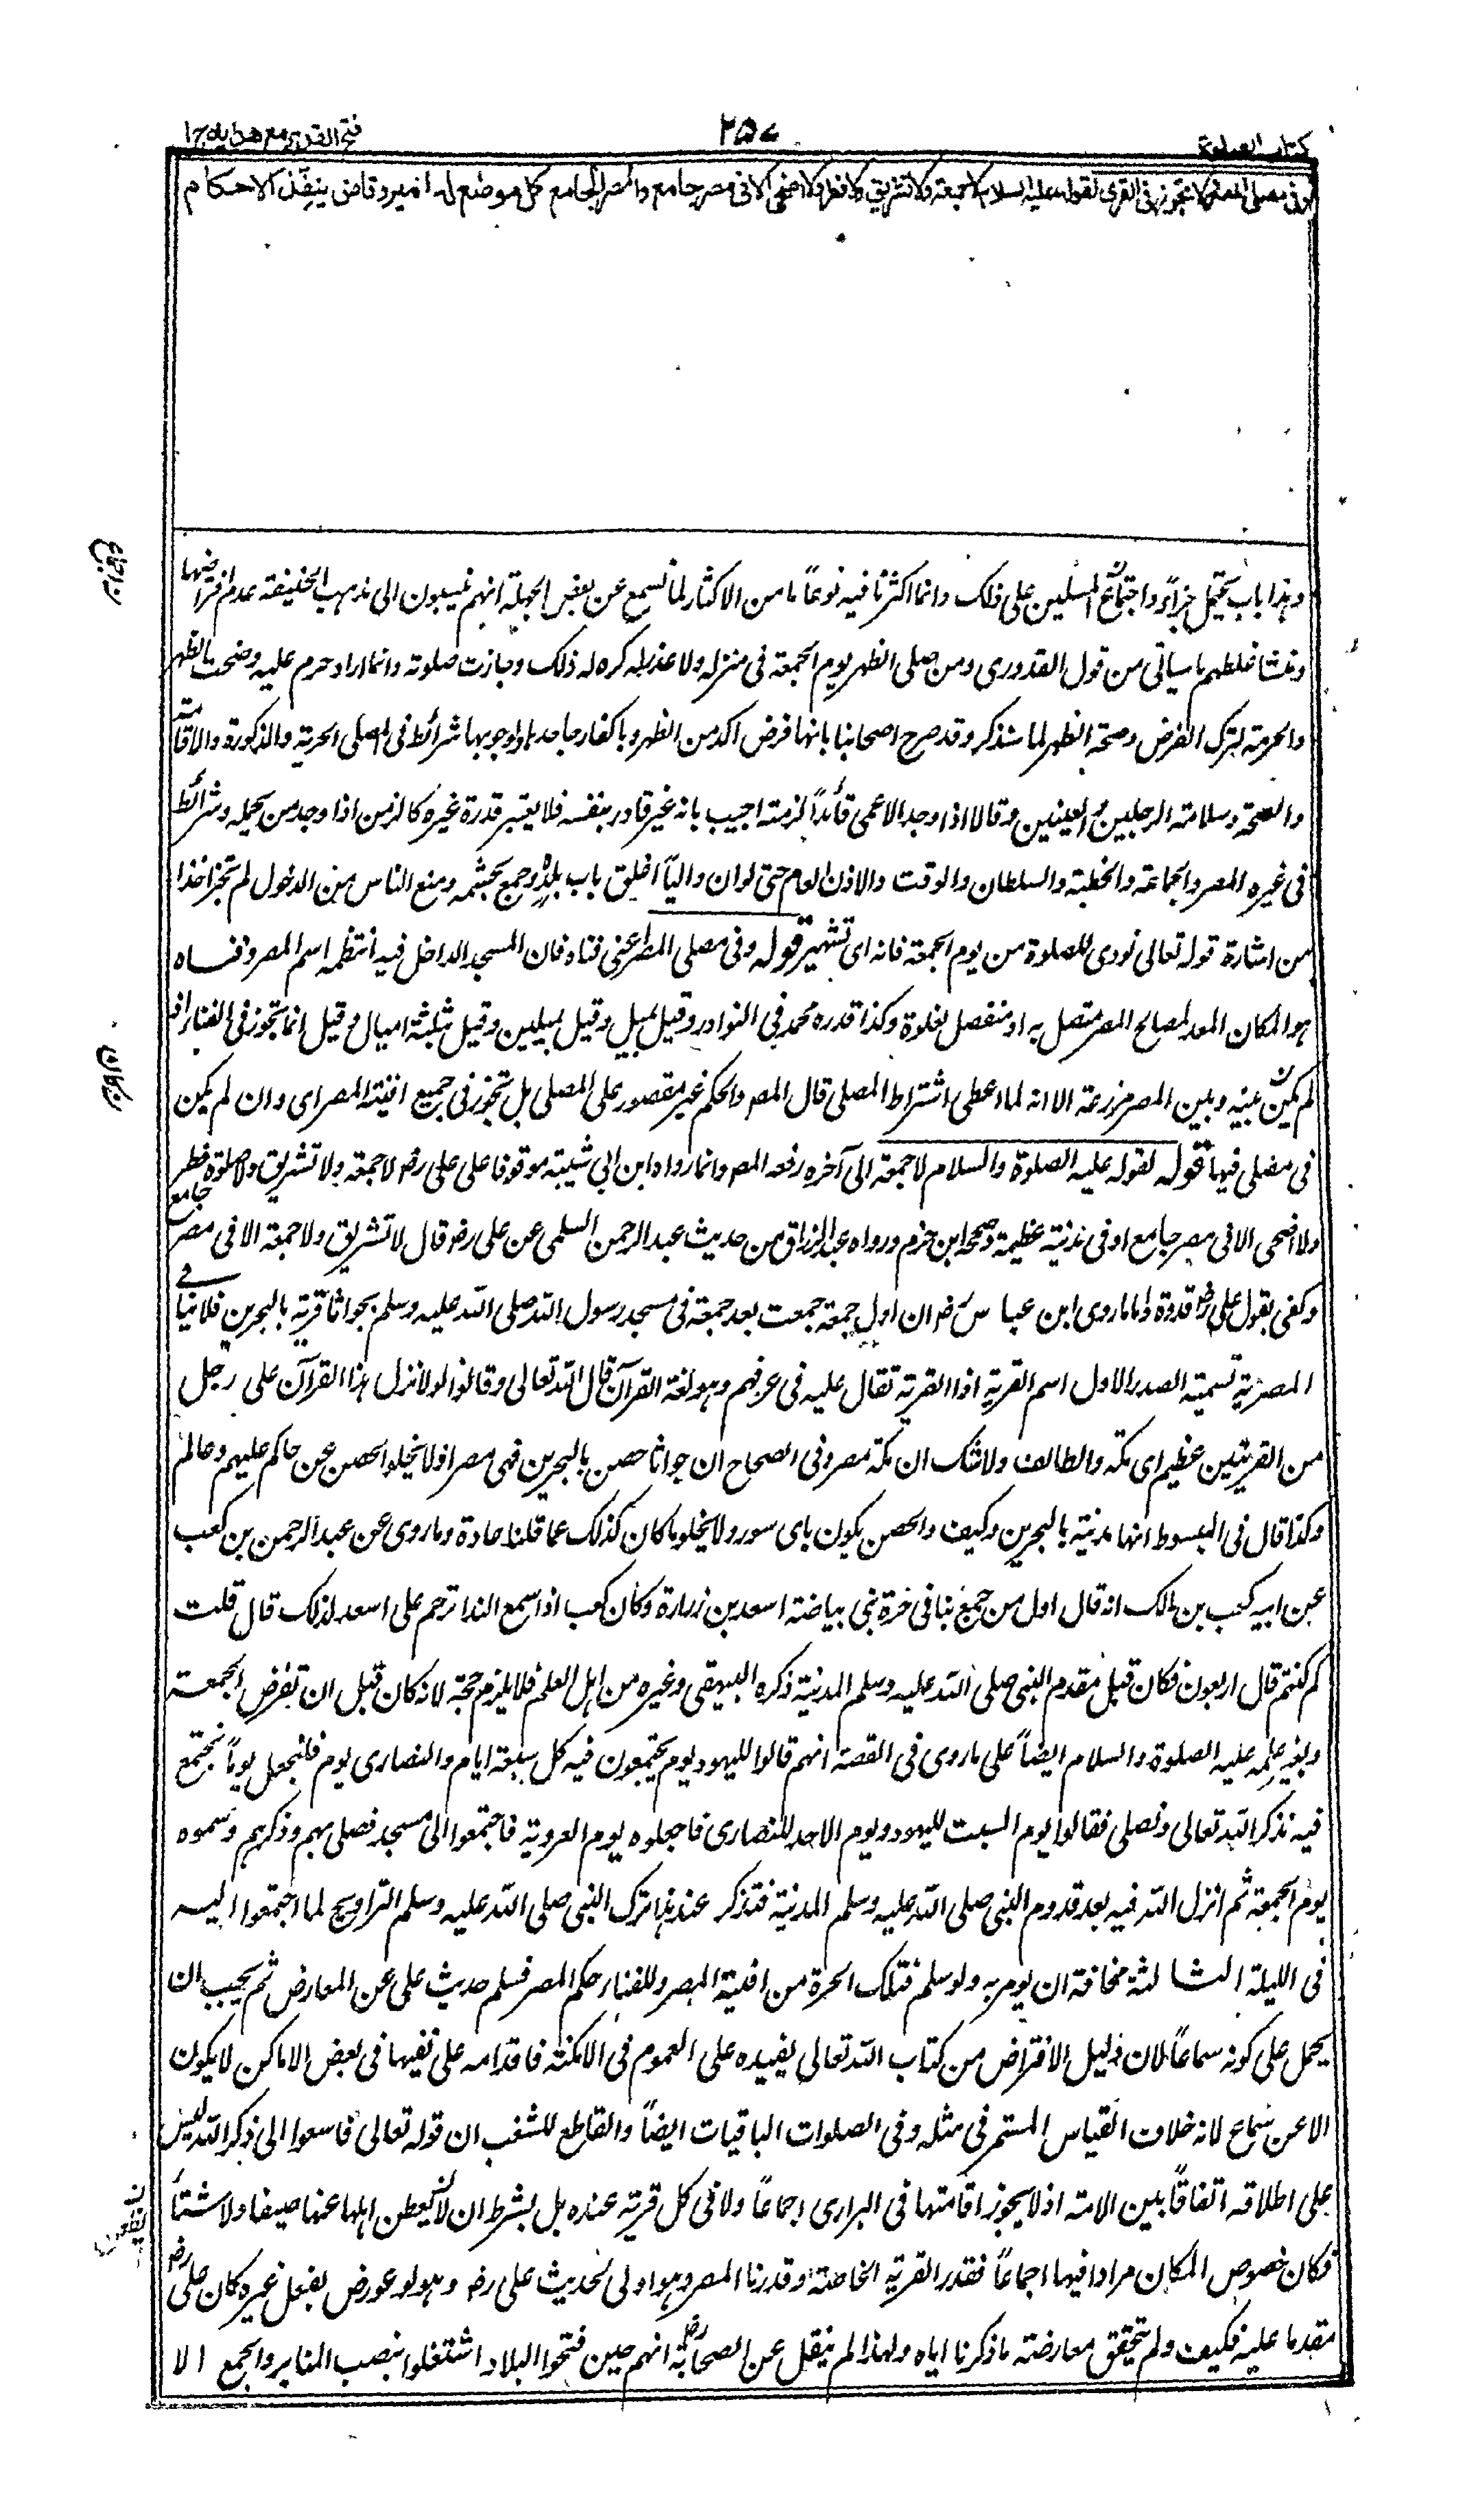 كتاب الصلوة
٢٥٧
فتح القدير مع هدايه ج ١
او في مصلى المصر ولا تجوز في القرى لقوله عليه السلام لا جمعة ولا تشريق ولا فطر ولا اضحى الا في مصر جامع والمصر الجامع كل موضع له امير وقاض ينفذ الاحكام
وهذا باب يحتمل جزاءً واجتماع المسلمين على ذلك وانما اكثرنا فيه نوعاً ما من الاكثار لما نسمع عن بعض الجهلة انهم ينسبون الى مذهب الحنيفة عدم افتراضها
ومنشأ غلطهم ما سياتى من قول القدورى ومن صلى الظهر يوم الجمعة فى منزله ولا عذر له كره له ذلك وجازت صلوته وانما اراد حرم عليه وصحت الظهر
والحرمة لترك الفرض وصحة الظهر لما سنذكر وقد صرح اصحابنا بانها فرض اكد من الظهر وباكفار جاحدها ولوجوبها شرائط فى المصلى الحرية والذكورة والاقامة
والصحة وسلامة الرجلين والعينين وقالا اذا وجد الاعمى قائداً لزمته اجيب بانه غير قادر بنفسه فلا يعتبر قدرة غيره كالزمن اذا وجد من يحمله وشرائط
فى غيره المصر والجماعة والخطبة والسلطان والوقت والاذن العام حتى لو ان والياً اغلق باب بلده وجمع بحشمه ومنع الناس من الدخول لم تجز اخذا
من اشارة قوله تعالى نودى للصلوة من يوم الجمعة فانه اى تشهير قوله وفى مصلى المصر اعنى فناه فان المسجد الداخل فيه انتظمه اسم المصر وفناه
هو المكان المعد لمصالح المصر متصل به او منفصل بغلوة وكذا قدره محمد فى النوادر وقيل بميل وقيل بميلين وقيل بثلثة اميال وقيل انما تجوز فى الفناء اذا
لم يكن بينه وبين المصر مزرعة الا انه لما اعطى اشتراط المصلى قال المص والحكم غير مقصور على المصلى بل تجوز فى جميع افنية المصر اى وان لم يكن
فى مصلى فيها قوله لقوله عليه الصلوة والسلام لا جمعة الى آخره رفعه المص وانما رواه ابن ابى شيبة موقوفا على على رض لا جمعة ولا تشريق ولا صلوة فطر
ولا اضحى الا فى مصر جامع او فى مدينة عظيمة وصححه ابن حزم ورواه عبد الرزاق من حديث عبد الرحمن السلمى عن على رض قال لا تشريق ولا جمعة الا فى مصر جامع
وكفى بقول على رض قدوة واما ما روى ابن عباس رض ان اول جمعة جمعت بعد جمعة فى مسجد رسول الله صلى الله عليه وسلم بجواثا قرية بالبحرين فلا ينافى
المصرية تسمية الصدر الاول اسم القرية اذ القرية تقال عليه فى عرفهم وهو لغة القرآن قال الله تعالى وقالوا لولا نزل هذا القرآن على رجل
من القريتين عظيم اى مكة والطائف ولا شك ان مكة مصر وفى الصحاح ان جواثا حصن بالبحرين فهى مصر اذ لا يخلو الحصن عن حاكم عليهم وعالم
وكذا قال فى المبسوط انها مدينة بالبحرين وكيف والحصن يكون باى سور ولا يخلو ما كان كذلك عما قلنا عادة وما روى عن عبد الرحمن بن كعب
عن ابيه كعب بن مالك انه قال اول من جمع بنا فى حرة بنى بياضة اسعد بن زرارة وكان كعب اذا سمع الندا ترحم على اسعد لذلك قال قلت
كم كنتم قال اربعون فكان قبل مقدم النبى صلى الله عليه وسلم المدينة ذكره البيهقى وغيره من اهل العلم فلا يلزم حجة لانه كان قبل ان تفرض الجمعة
وبغير علمه عليه الصلوة والسلام ايضاً على ما روى فى القصة انهم قالوا لليهود يوم يجتمعون فيه كل سبعة ايام والنصارى يوم فلنجعل يوماً نجتمع
فيه نذكر الله تعالى ونصلى فقالوا يوم السبت لليهود ويوم الاحد للنصارى فاجعلوه يوم العروبة فاجتمعوا الى مسجد فصلى بهم وذكرهم وسموه
يوم الجمعة ثم انزل الله فيه بعد قدوم النبى صلى الله عليه وسلم المدينة فتذكر عند هذا ترك النبى صلى الله عليه وسلم التراويح لما اجتمعوا اليه
فى الليلة الثالثة مخافة ان يومر به ولو سلم فتلك الحرة من افنية المصر وللفناء حكم المصر فسلم حديث على عن المعارض ثم يجب ان
يحمل على كونه سماعاً لان دليل الافتراض من كتاب الله تعالى يفيده على العموم فى الامكنة فاقدامه على نفيها فى بعض الاماكن لا يكون
الا عن سماع لانه خلاف القياس المستمر فى مثله وفى الصلوات الباقيات ايضاً والقاطع للشغب ان قوله تعالى فاسعوا الى ذكر الله ليس
على اطلاقه اتفاقاً بين الامة اذ لا يجوز اقامتها فى البرارى اجماعاً ولا فى كل قرية عنده بل بشرط ان لا يظعن اهلها عنها صيفا ولا شتاءً
فكان خصوص المكان مرادا فيها اجماعاً فقدر القرية الخاصة وقدرنا المصر وهو اولى لحديث على رض وهو لو عورض بفعل غيره كان على رض
مقدما عليه فكيف ولم تتحقق معارضته ما ذكرنا اياه ولهذا لم ينقل عن الصحابة رض انهم حين فتحوا البلاد اشتغلوا بنصب المنابر والجمع الا